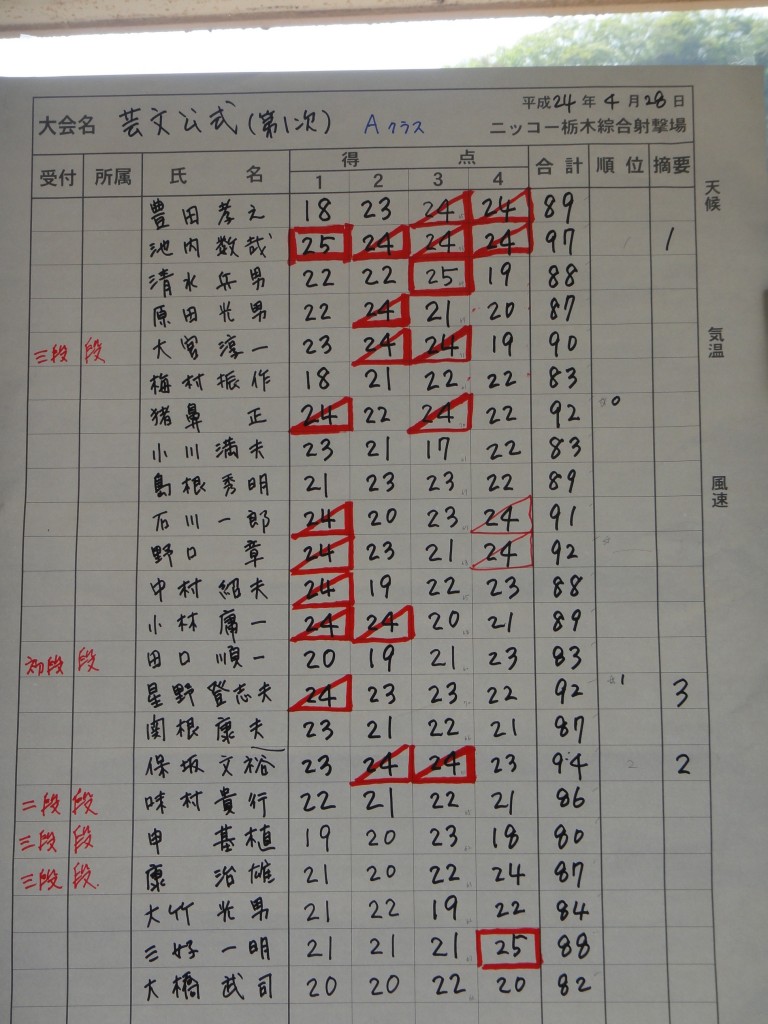 平成24年4月28日
大会名 芸文公式(第1次) Aクラス ニッコー栃木綜合射撃場
受付 所属 氏名 得点 合計 順位 摘要
1 2 3 4
天候
豊田孝之 18 23 24 24 89
池内数哉 25 24 24 24 97 1
清水兵男 22 22 25 19 88
原田光男 22 24 21 20 87
気温
三段 段 大宮淳一 23 24 24 19 90
梅村振作 18 21 22 22 83
猪鼻正 24 22 24 22 92 0
小川満夫 23 21 17 22 83
島根秀明 21 23 23 22 89
風速
石川一郎 24 20 23 24 91
野口章 24 23 21 24 92
中村紹夫 24 19 22 23 88
小林庸一 24 24 20 21 89
初段 段 田口順一 20 19 21 23 83
星野登志夫 24 23 23 22 92 1 3
関根康夫 23 21 22 21 87
保坂文裕 23 24 24 23 94 2 2
二段 段 味村貴行 22 21 22 21 86
三段 段 申基植 19 20 23 18 80
三段 段 康治雄 21 20 22 24 87
大竹光男 21 22 19 22 84
三好一明 21 21 21 25 88
大橋武司 20 20 22 20 82